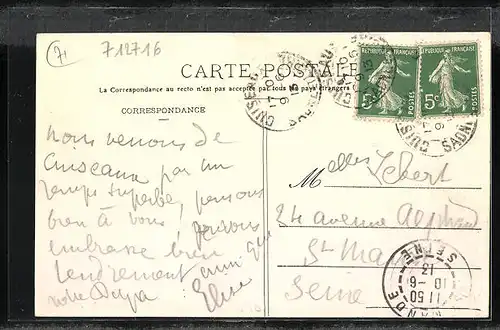 71
712716
CARTE POSTALE
La Correspondance au recto n'est pas acceptée par tous les pays étrangers
CORRESPONDANCE
RÉPUBLIQUE FRANÇAISE
5c
POSTES
RÉPUBLIQUE FRANÇAISE
5c
POSTES
CUISEAUX
SAONE
Nous venons de
Cuiseaux par un
temps superbe, pensons
bien à vous,
embrasse bien
tendrement ainsi que
Elise
votre
Melles Lebert
24 avenue
St Man
Seine
SEINE
13
10 - 6
11 50